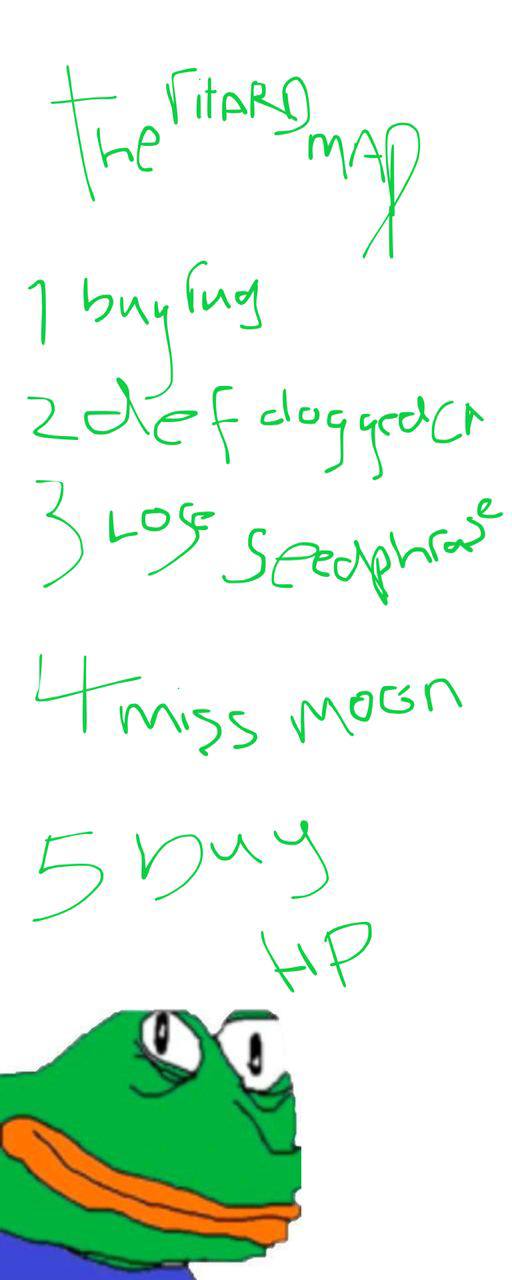 the ritARD mAp
1 buy rug
2 def doggedCA
3 LOSe Seedphrase
4 miss moon
5 buy
HP